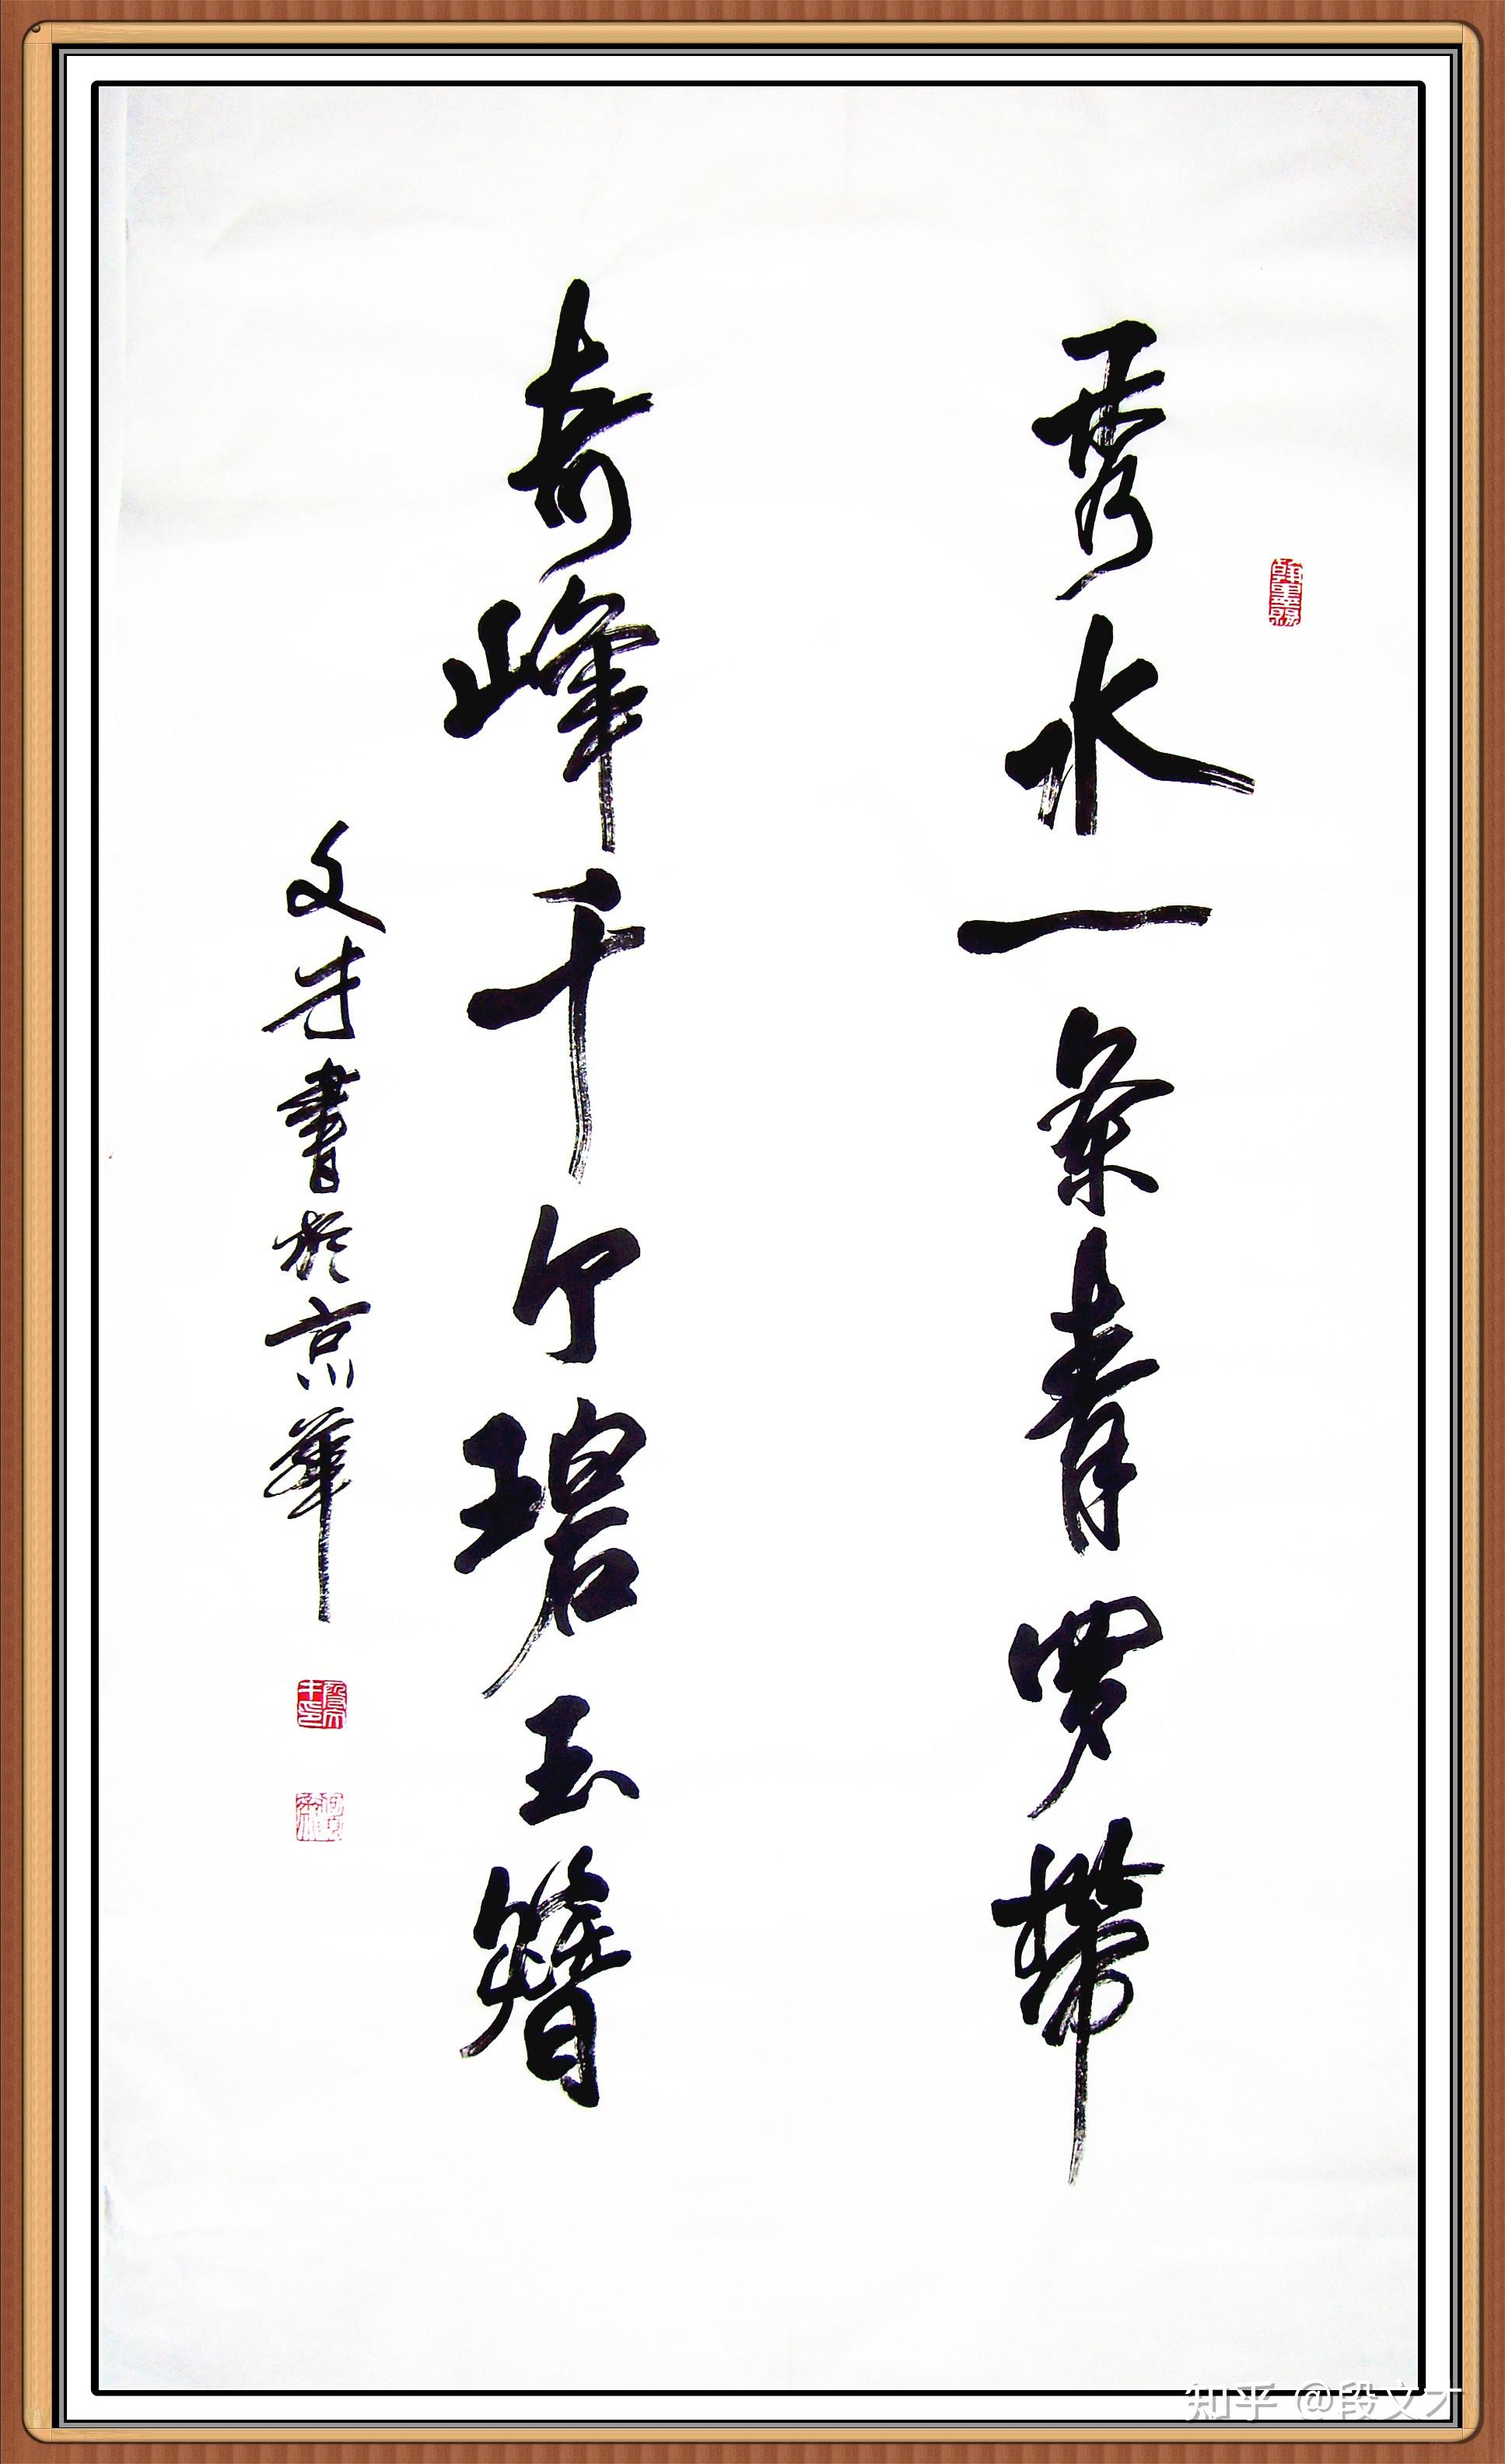 秀水一条青罗带
奇峰千个碧玉簪
文才書於京華
翰墨緣
知乎 @段文才